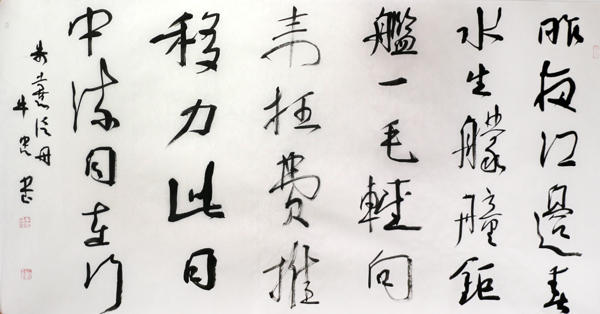 昨夜江邊春
水生艨艟鉅
艦一毛輕向
来枉費推
移力此日
中流自在行
朱熹泛舟
牛 書